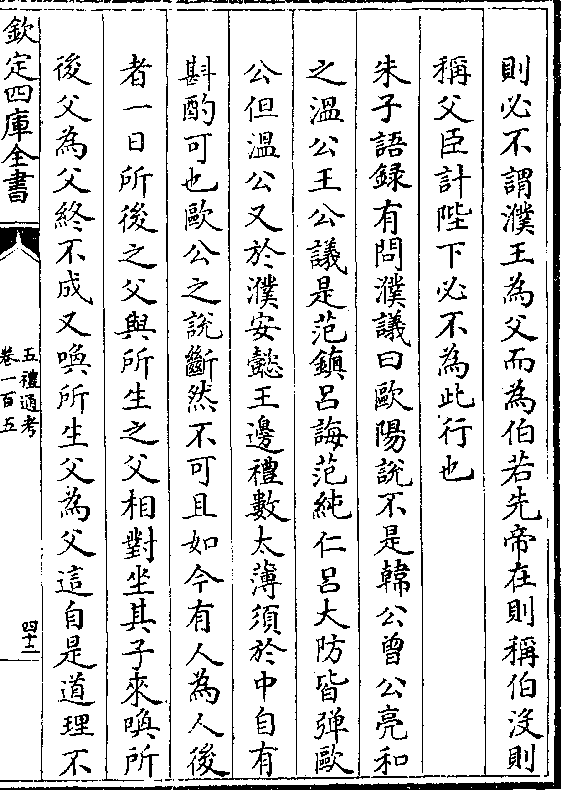 則必不謂濮王為父而為伯若先帝在則稱伯沒則
稱父臣計陛下必不為此行也
朱子語録有問濮議曰歐陽說不是韓公曽公亮和
之温公王公議是范鎮呂誨范純仁呂大防皆弾歐
公但温公又於濮安懿王邉禮數太薄須於中自有
斟酌可也歐公之說斷然不可且如今有人為人後
者一日所後之父與所生之父相對坐其子來喚所
後父為父終不成又喚所生父為父這自是道理不
欽定四庫全書
五禮通考
卷一百五
四十二